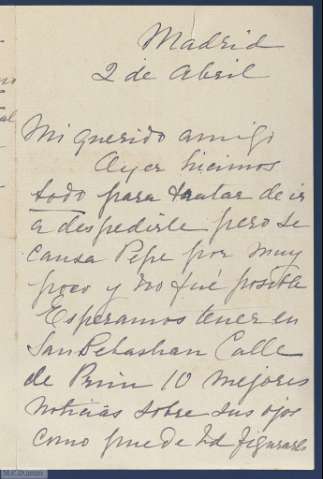 Madrid
2 de Abril
Mi querido amigo
Ayer hicimos
todo para tratar de ir
a despedirle pero se
cansa Pepe por muy
poco y no fué posible
Esperamos tener en
San Sebastian Calle
de Prim 10 mejores
noticias sobre sus ojos
como puede Vd figurarse